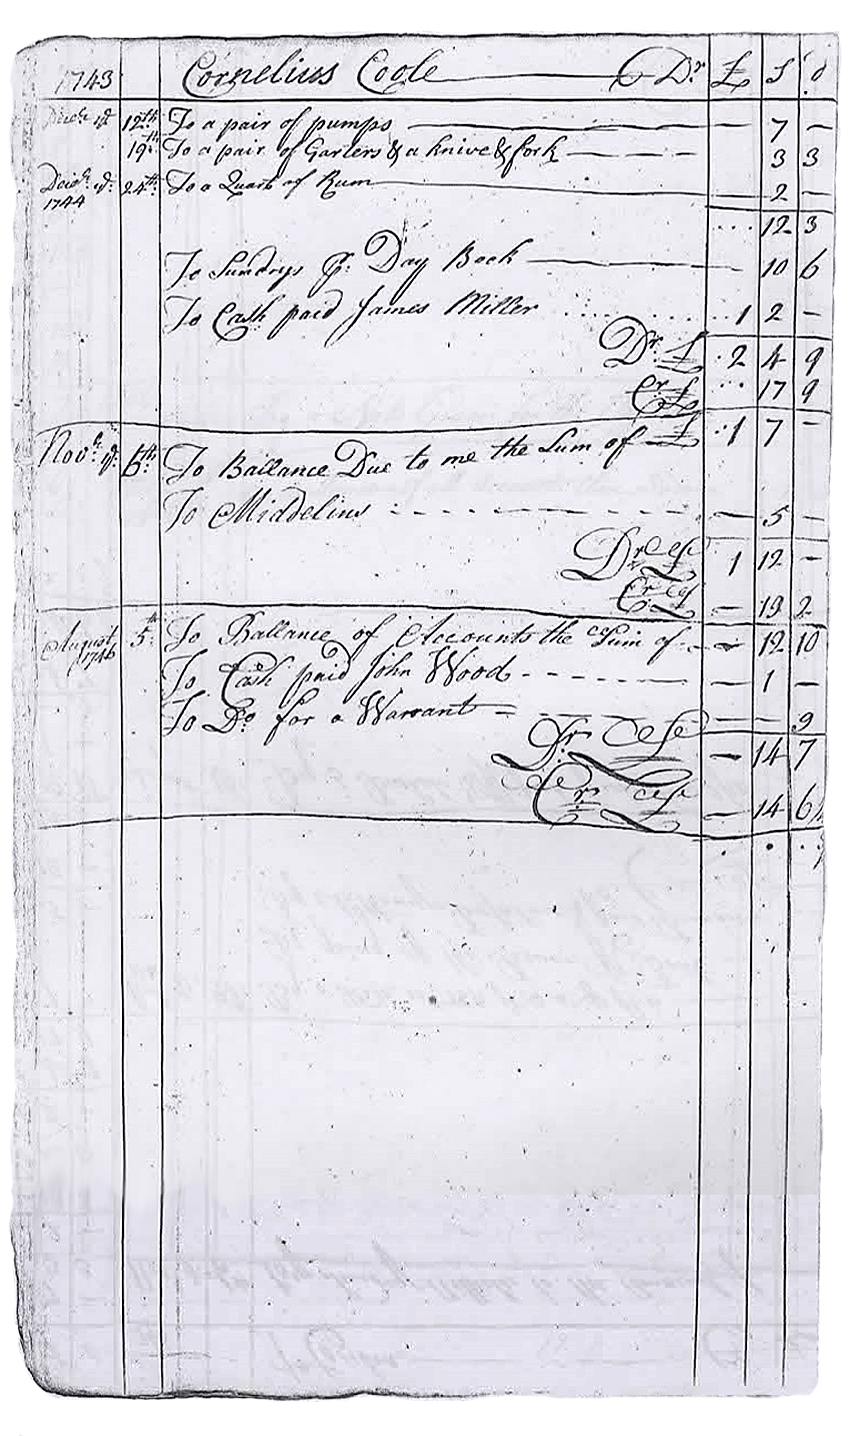 1743 Cornelius Coole Dr £ S d
Decbr ye 12th To a pair of pumps — 7 —
19th To a pair of Garters & a knive & fork — 3 3
Decbr ye 24th To a Quart of Rum — 2 —
1744
12 3
To Sundrys pr Day Book — 10 6
To Cash paid James Miller 1 2 —
Dr £ 2 4 9
Cr £ 17 9
£ 1 7 —
Novbr ye 6th To Ballance Due to me the Sum of
To Middelins — 5 —
Dr £ 1 12 —
Cr £ — 19 2
August 5th To Ballance of Accounts the Sum of — 12 10
1746
To Cash paid John Wood — 1 —
To Do for a Warrant — — 9
Dr £ — 14 7
Cr £ — 14 6